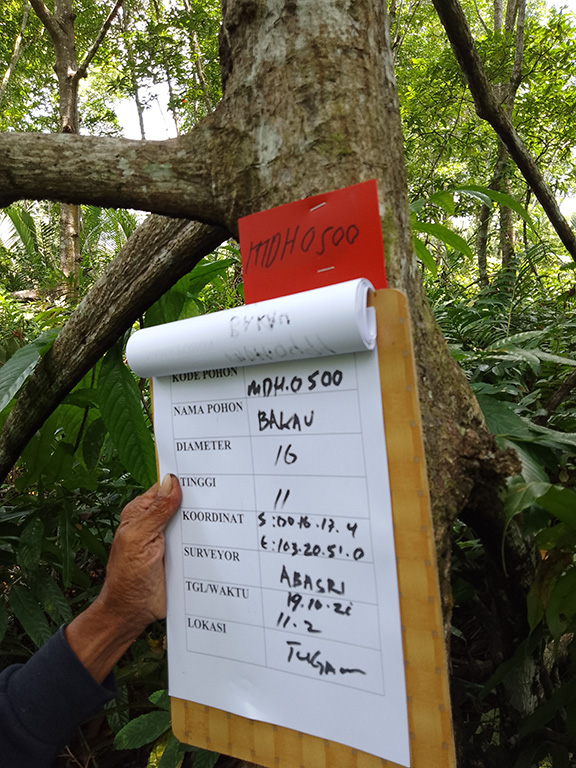 MDH0500
BAKAU
KODE POHON MDH.0500
NAMA POHON BAKAU
DIAMETER 16
TINGGI 11
KOORDINAT S:00.16.17.4
E:103.20.51.0
SURVEYOR ABASRI
TGL/WAKTU 19.10.21
11.2
LOKASI